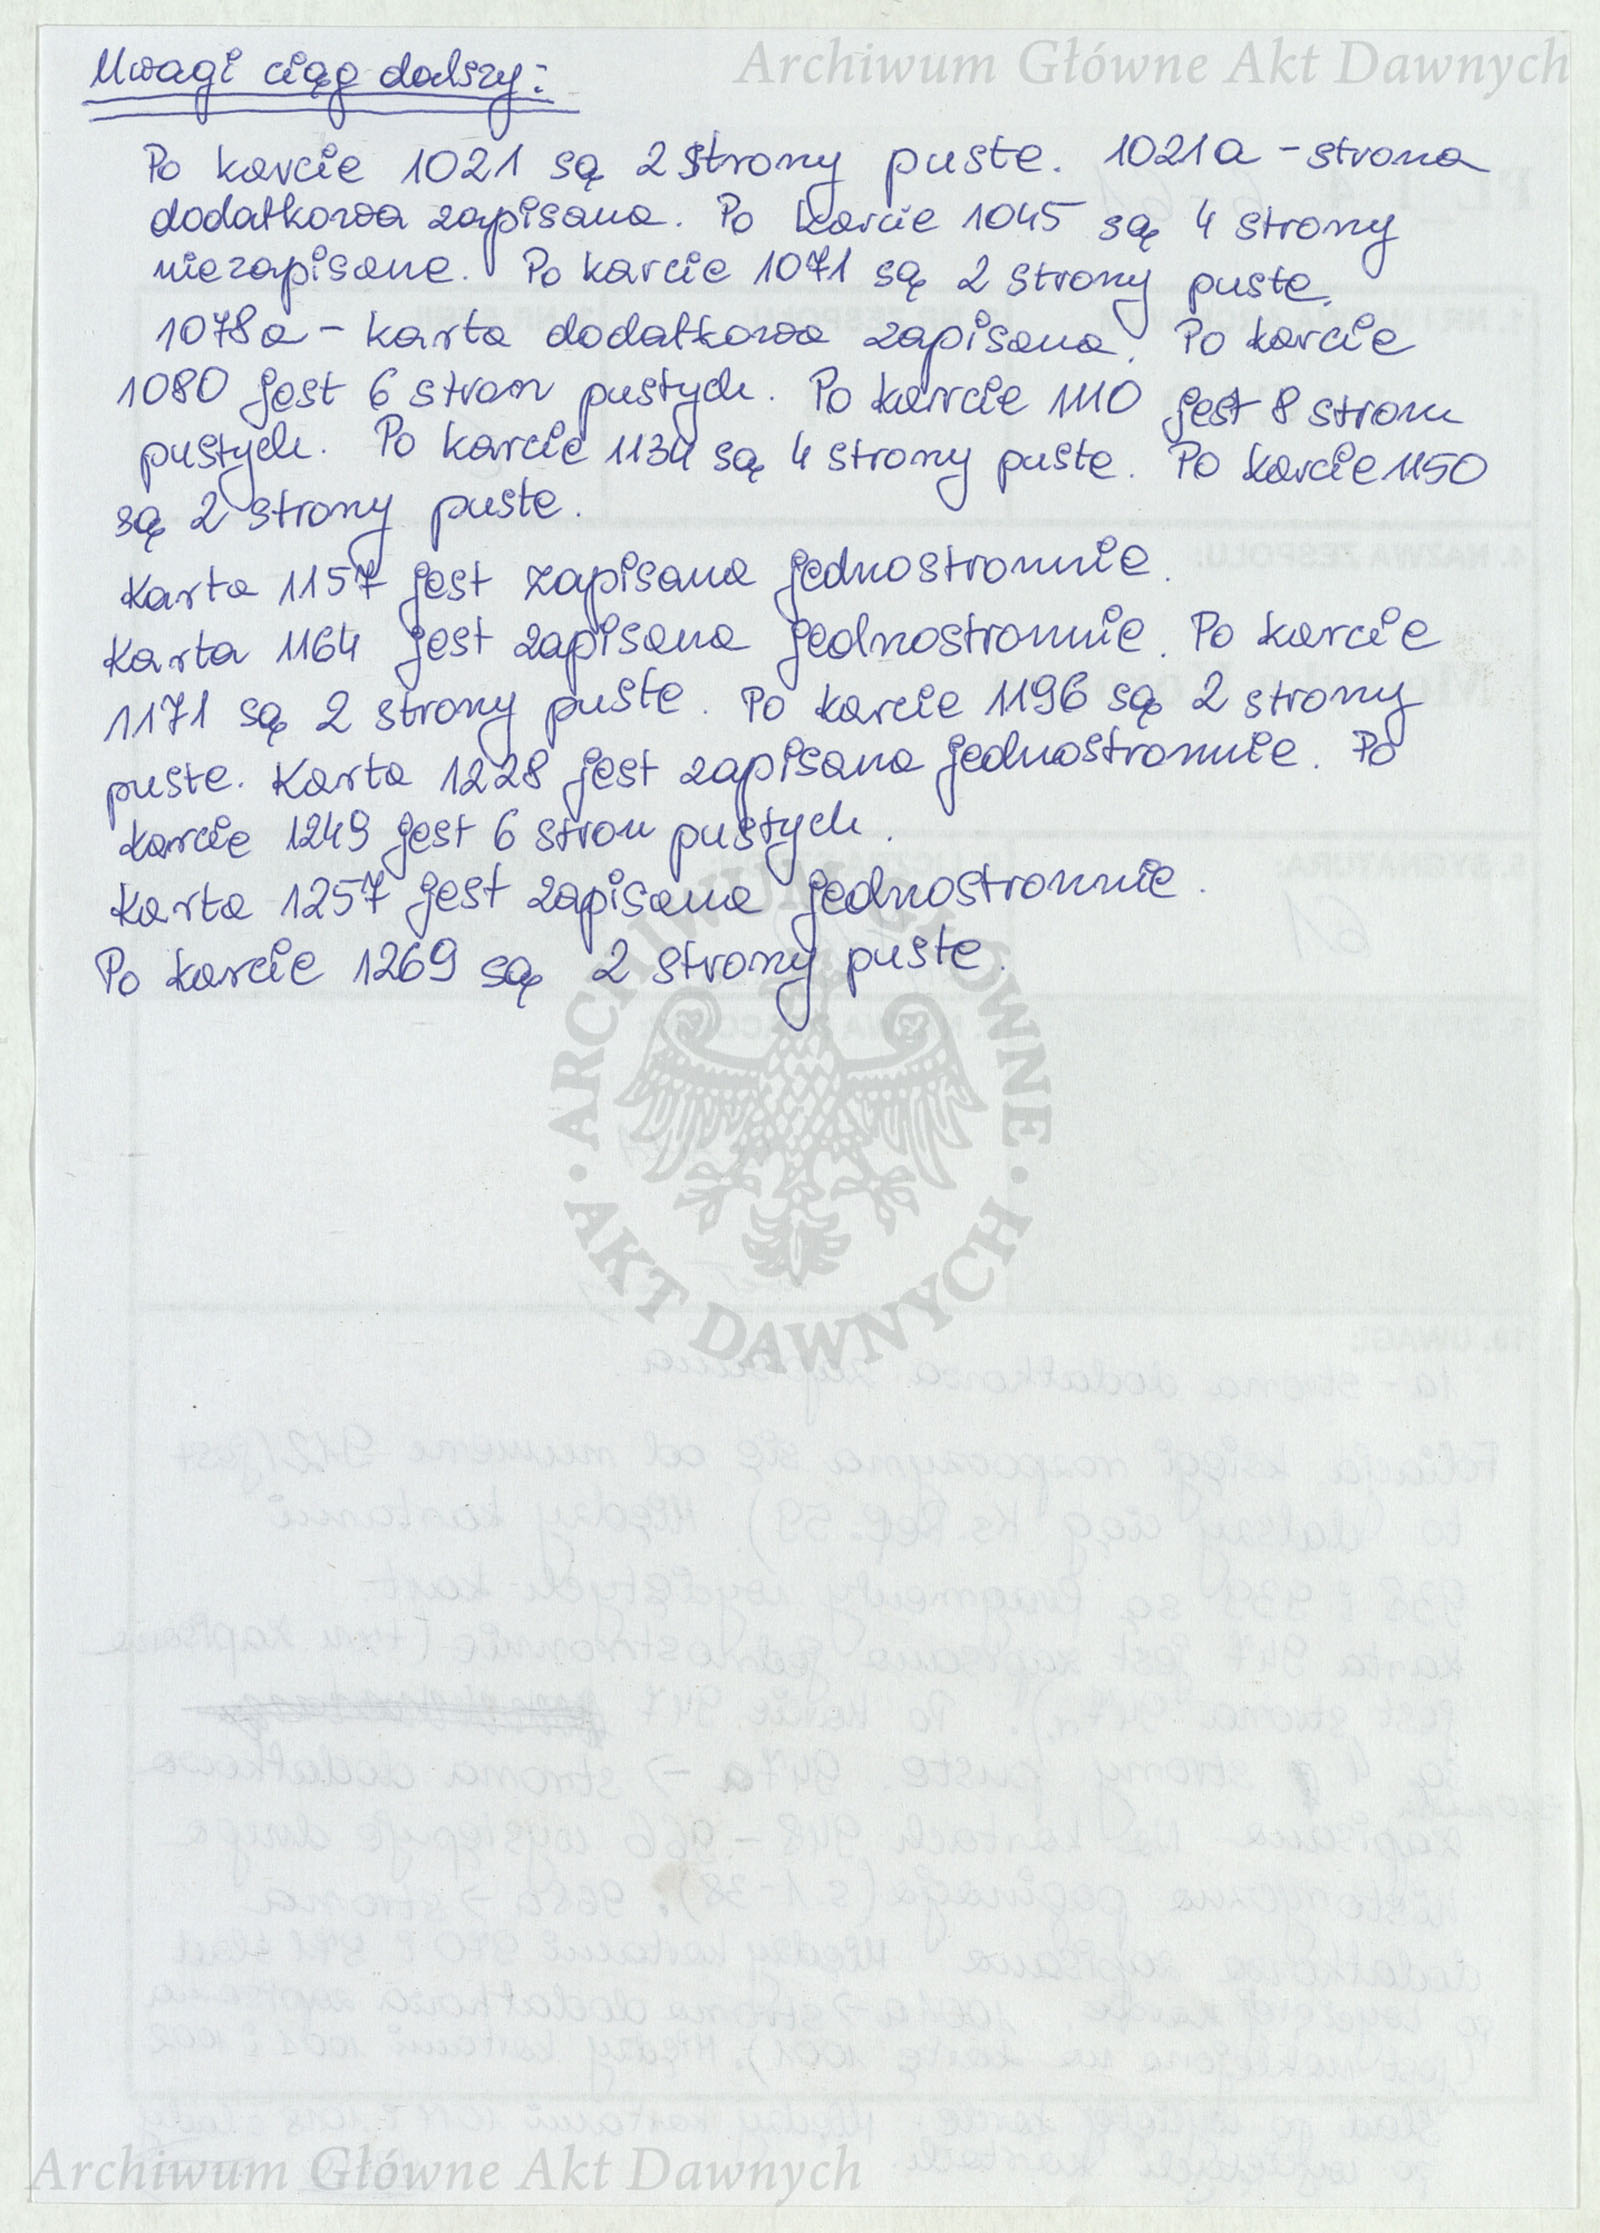 Archiwum Główne Akt Dawnych
Uwagi ciąg dalszy:
Po karcie 1021 są 2 strony puste. 1021a - strona
dodatkowa zapisana. Po karcie 1045 są 4 strony
niezapisane. Po karcie 1071 są 2 strony puste.
1078a - karta dodatkowa zapisana. Po karcie
1080 jest 6 stron pustych. Po karcie 1110 jest 8 stron
pustych. Po karcie 1134 są 4 strony puste. Po karcie 1150
są 2 strony puste.
Karta 1157 jest zapisana jednostronnie.
Karta 1164 jest zapisana jednostronnie. Po karcie
1171 są 2 strony puste. Po karcie 1196 są 2 strony
puste. Karta 1228 jest zapisana jednostronnie. Po
karcie 1249 jest 6 stron pustych.
Karta 1257 jest zapisana jednostronnie.
Po karcie 1269 są 2 strony puste.
ARCHIWUM GŁÓWNE
AKT DAWNYCH
Archiwum Główne Akt Dawnych